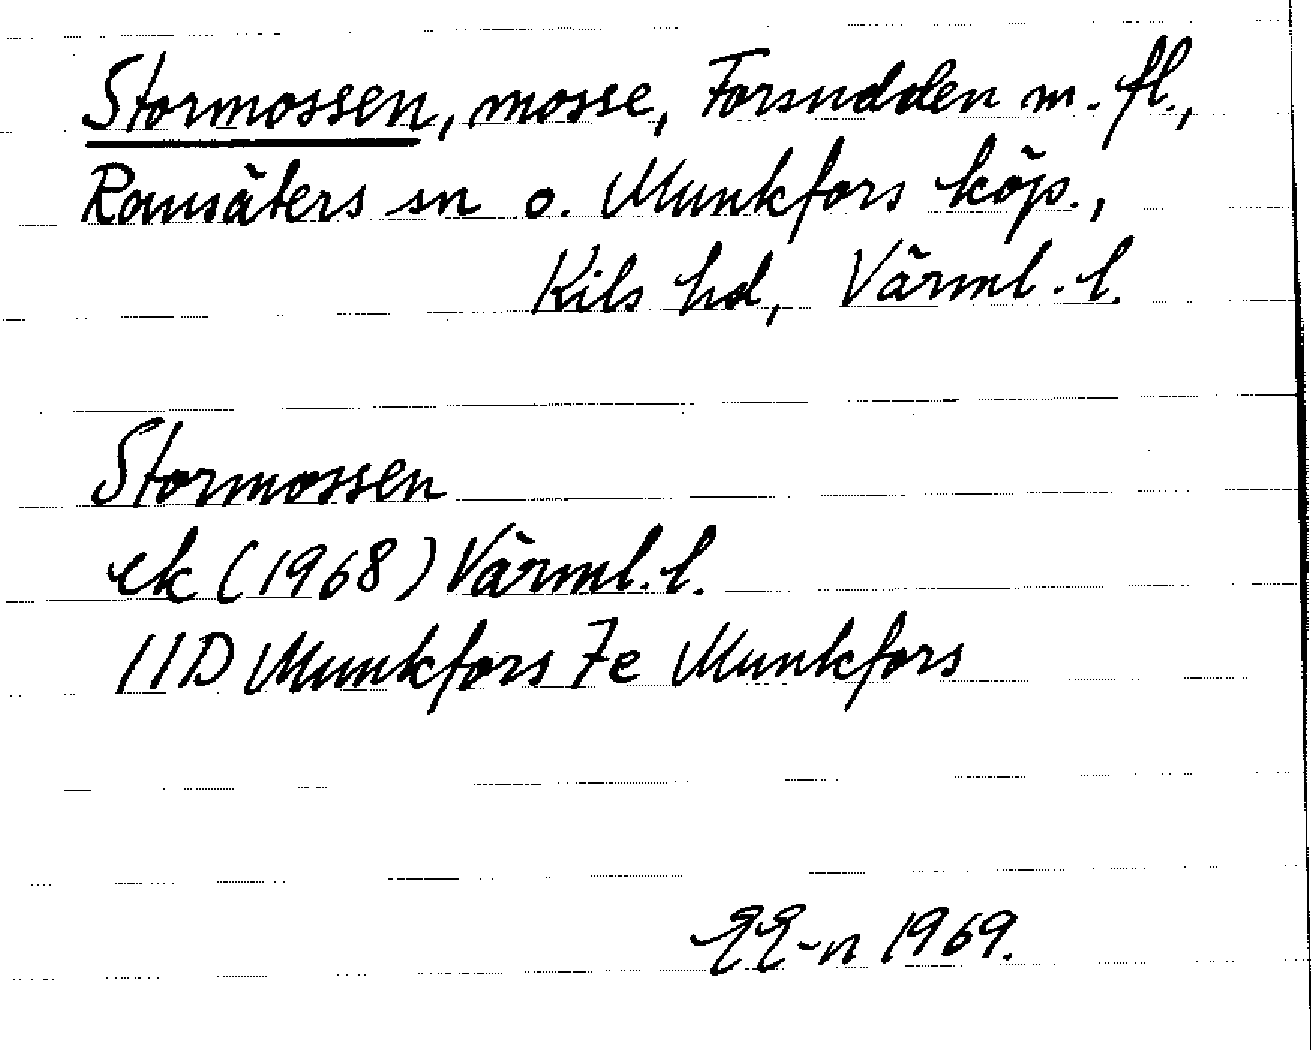 Stormossen, mosse, Forsudden m. fl.,
Ransäters sn o. Munkfors köp.,
Kils hd, Värml. l.
Stormossen
ek (1968) Värml. l.
11D Munkfors 7e Munkfors
EE-n 1969.